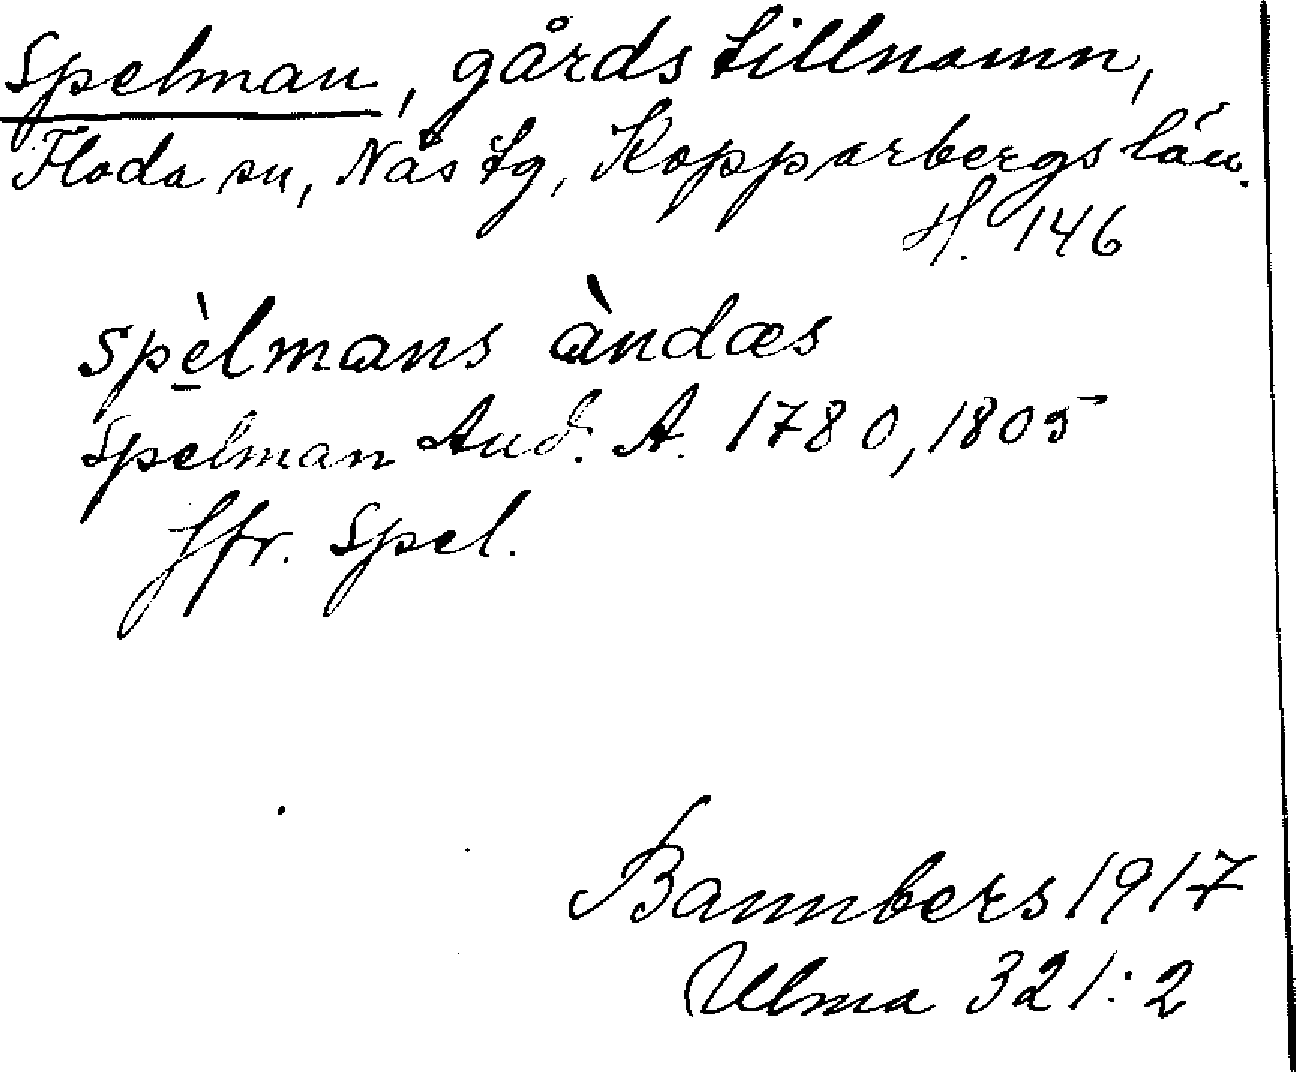 Spelman, gårdstillnamn,
Floda sn, Nås tg, Kopparbergs län.
H. 146
spè̱lmans àndæs
Spelman And. A. 1780, 1805
Jfr. Spel.
Bannbers 1917
Ulma 321:2